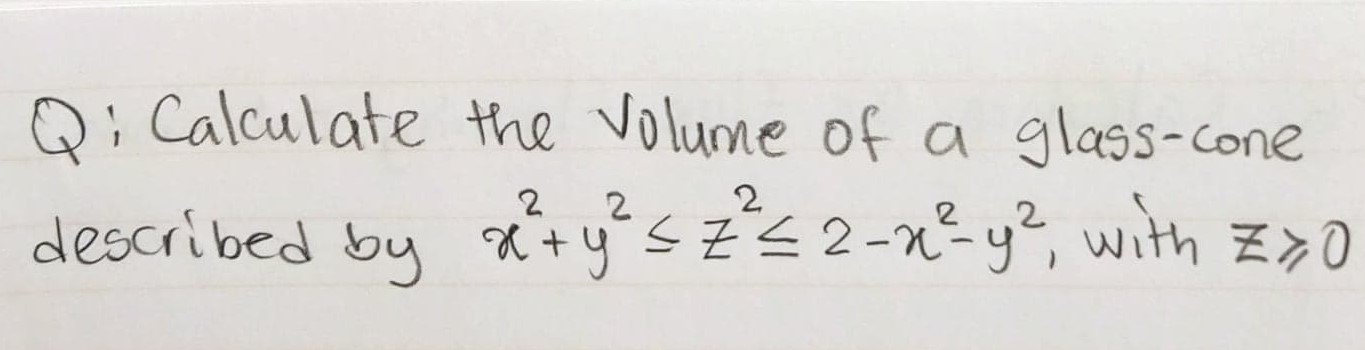 Q: Calculate the Volume of a glass-cone
described by x² + y² ≤ z² ≤ 2 - x² - y², with z ⩾ 0